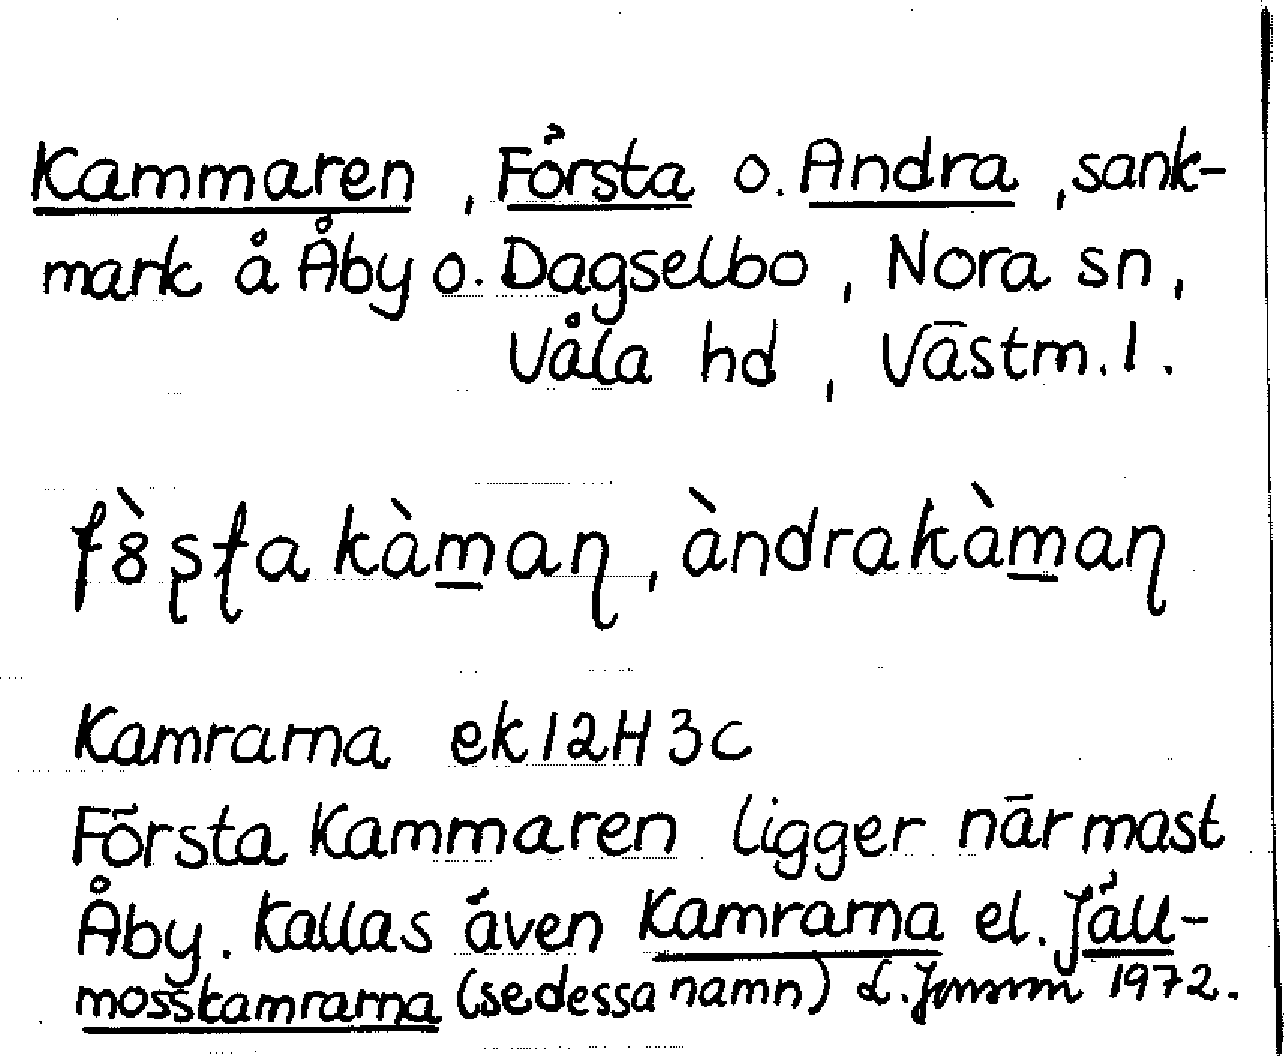 Kammaren , Första o. Andra , sank-
mark å Åby o. Dagselbo , Nora sn ,
Våla hd , Västm. l .
fösta kàman , àndrakàman
Kamrarna ek 12H 3c
Första Kammaren ligger närmast
Åby . Kallas även Kamrarna el. Jäll-
mosskamrarna (se dessa namn) L. Jonsson 1972.